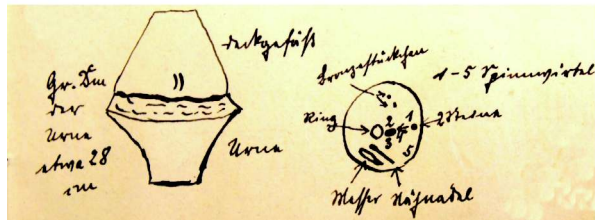 Deckgefäß
Gr. Dm
der
Urne
etwa 28
cm
Urne
Bronzestückchen
1-5 Spinnwirtel
Ring
2 1
3 4
5
2 Steine
Messer Nähnadel